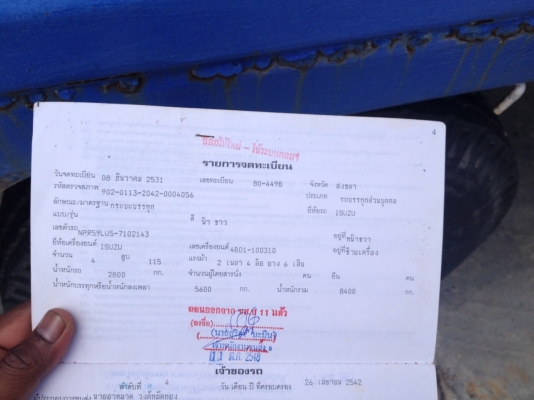 4
รายการจดทะเบียน
วันจดทะเบียน 08 ธันวาคม 2531 เลขทะเบียน 80-4498 จังหวัด สงขลา
รหัสตรวจสภาพ 902-0113-2042-0004056 ประเภท รถบรรทุกส่วนบุคคล
ลักษณะ/มาตรฐาน กระบะบรรทุก สี ฟ้า ขาว ยี่ห้อรถ ISUZU
แบบ/รุ่น
เลขตัวรถ NPR59LU5-7102143 อยู่ที่
ยี่ห้อเครื่องยนต์ ISUZU เลขเครื่องยนต์ 4BD1-100310 อยู่ที่
จำนวน 4 สูบ 115 แรงม้า 2 เพลา 4 ล้อ ยาง 6 เส้น
น้ำหนักรถ 2800 กก. จำนวนผู้โดยสารนั่ง คน ยืน คน
น้ำหนักบรรทุกหรือน้ำหนักลงเพลา 5600 กก. น้ำหนักรวม 8400 กก.
11 แล้ว
(ลงชื่อ)
เจ้าของรถ
ลำดับที่ 4 วัน เดือน ปี ที่ครอบครอง 26 เมษายน 2542